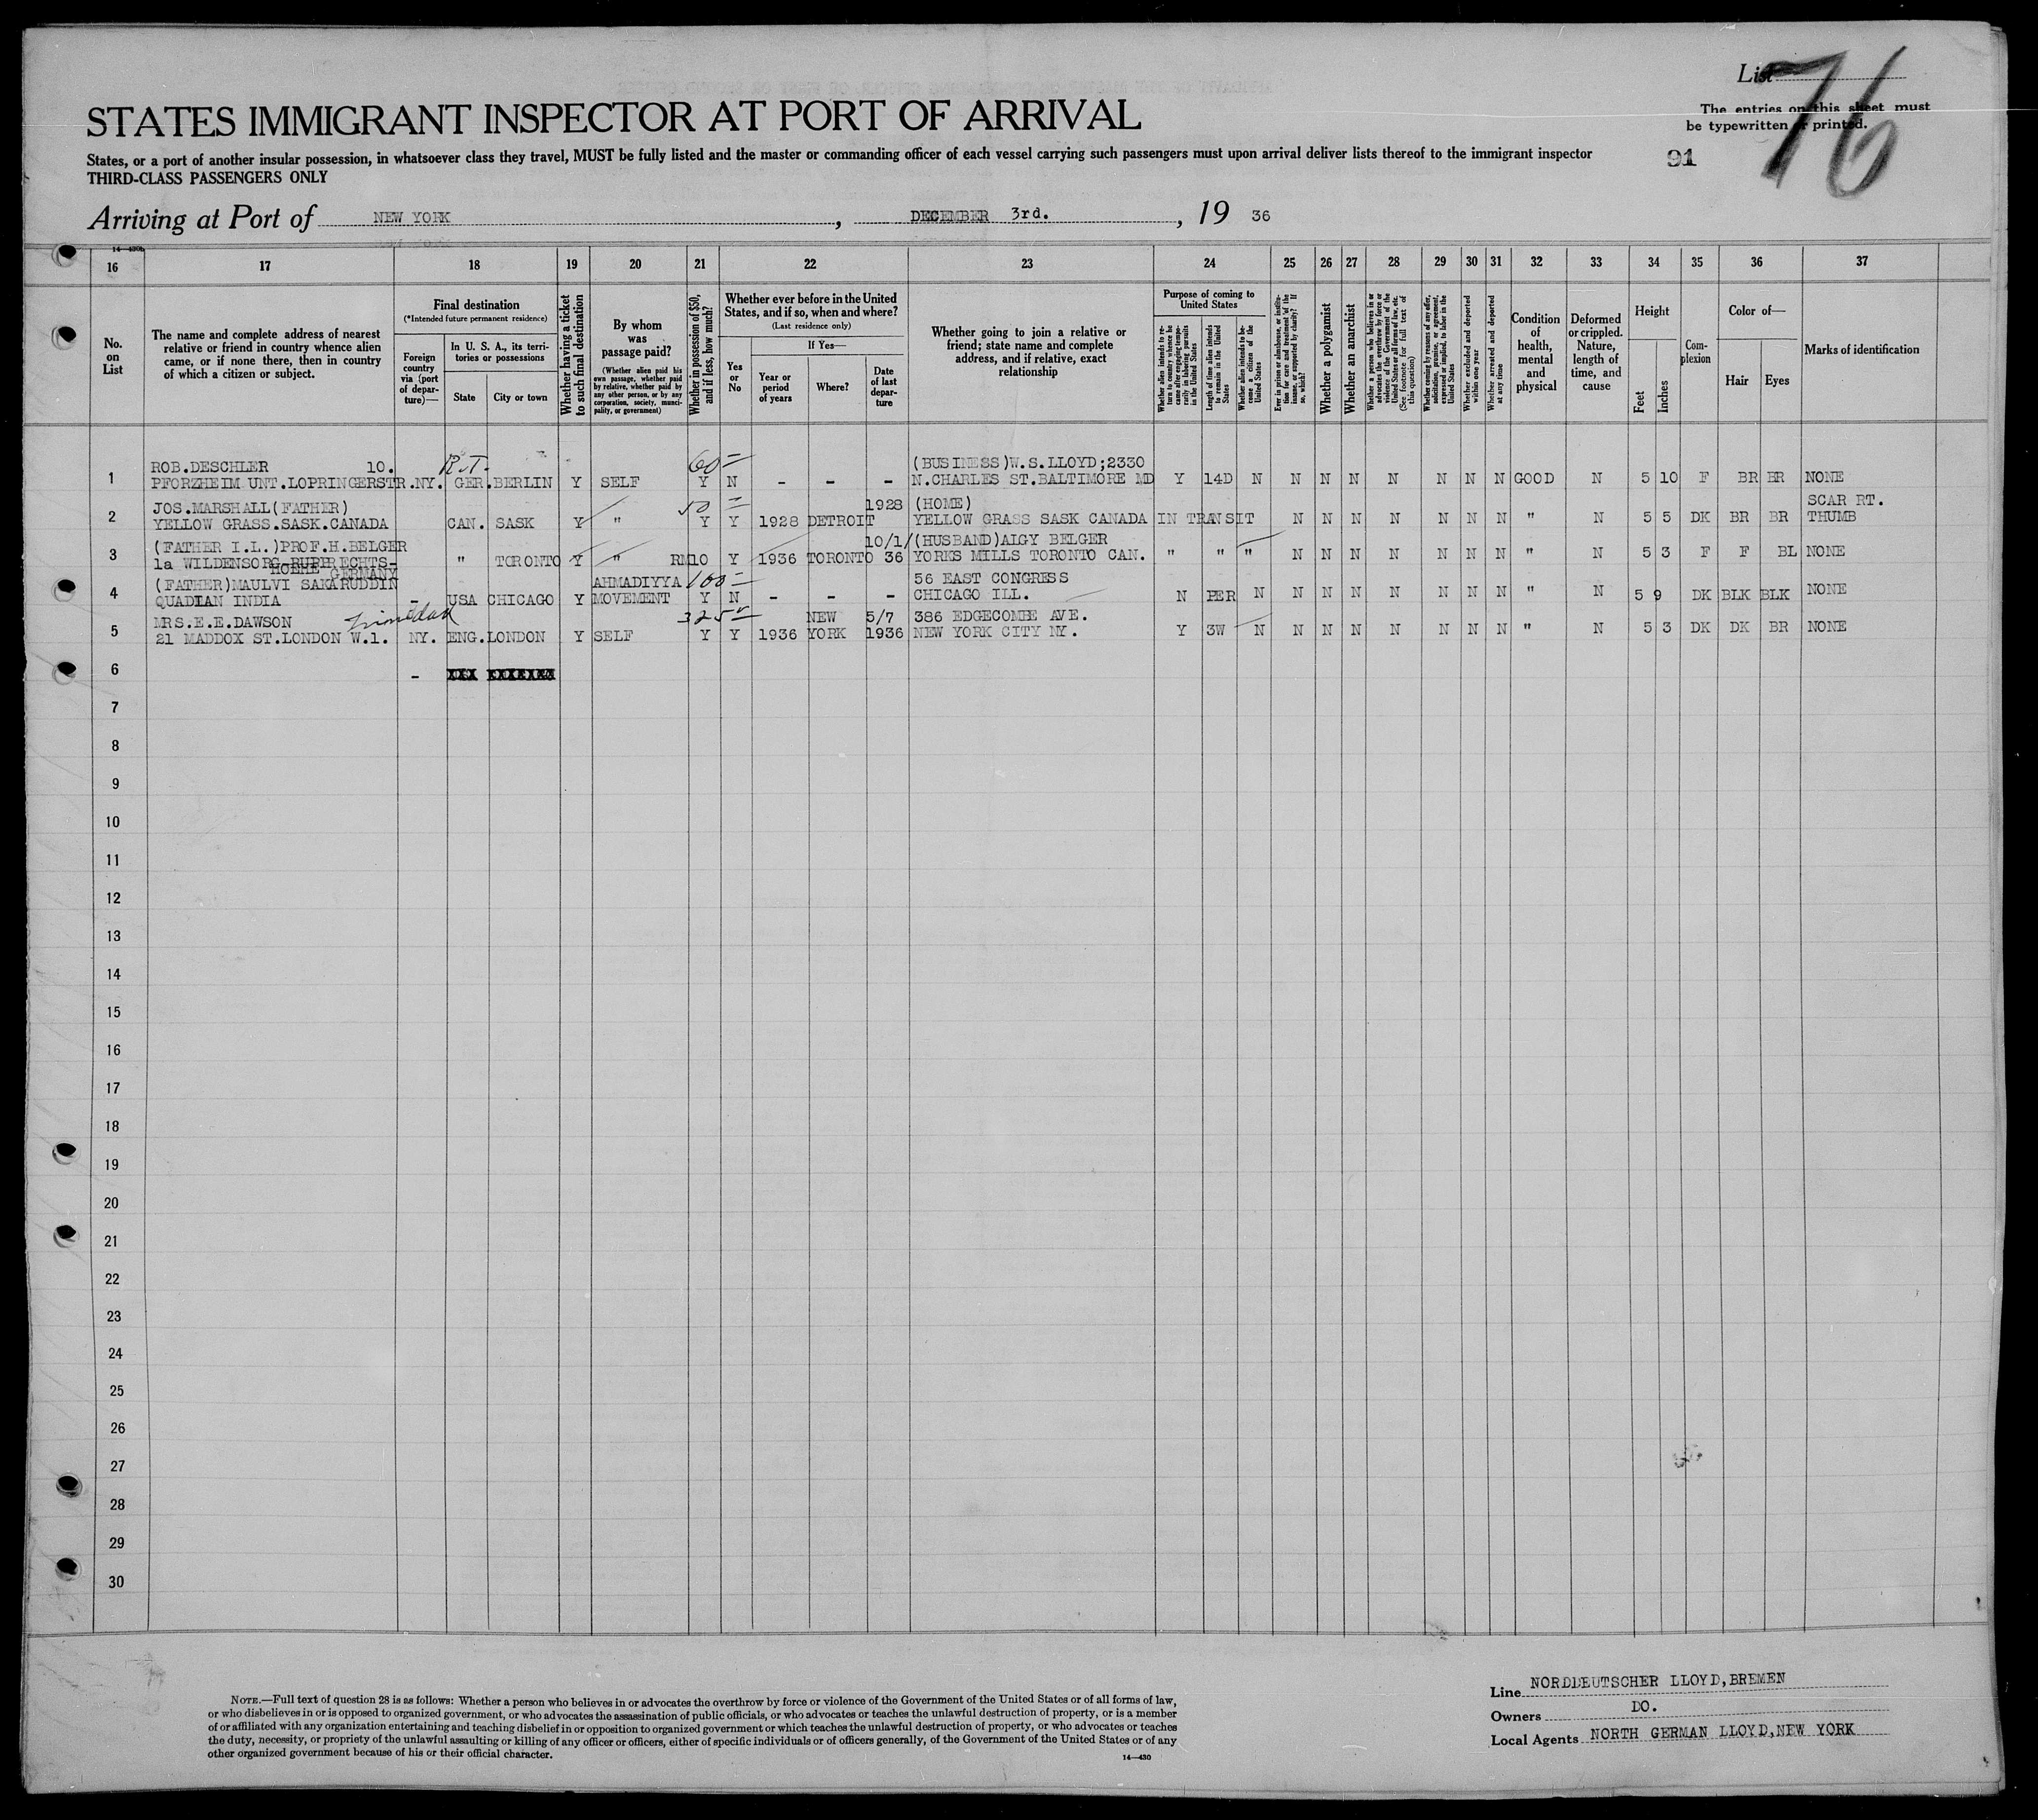 List 76
STATES IMMIGRANT INSPECTOR AT PORT OF ARRIVAL
The entries on this sheet must
be typewritten or printed.
States, or a port of another insular possession, in whatsoever class they travel, MUST be fully listed and the master or commanding officer of each vessel carrying such passengers must upon arrival deliver lists thereof to the immigrant inspector
91
THIRD-CLASS PASSENGERS ONLY
Arriving at Port of NEW YORK, DECEMBER 3rd., 19 36
14—430b
16 17 18 19 20 21 22 23 24 25 26 27 28 29 30 31 32 33 34 35 36 37
No. on List
The name and complete address of nearest relative or friend in country whence alien came, or if none there, then in country of which a citizen or subject.
Final destination
(*Intended future permanent residence)
Foreign country via (port of departure)—
In U. S. A., its territories or possessions
State
City or town
Whether having a ticket to such final destination
By whom was passage paid?
(Whether alien paid his own passage, whether paid by relative, whether paid by any other person, or by any corporation, society, municipality, or government)
Whether in possession of $50, and if less, how much?
Whether ever before in the United States, and if so, when and where?
(Last residence only)
Yes or No
If Yes—
Year or period of years
Where?
Date of last departure
Whether going to join a relative or friend; state name and complete address, and if relative, exact relationship
Purpose of coming to United States
Whether alien intends to return to country whence he came after engaging temporarily in laboring pursuits in the United States
Length of time alien intends to remain in the United States
Whether alien intends to become a citizen of the United States
Ever in prison or almshouse, or institution for care and treatment of the insane, or supported by charity? If so, which?
Whether a polygamist
Whether an anarchist
Whether a person who believes in or advocates the overthrow by force or violence of the Government of the United States or all forms of law, etc. (See footnote for full text of this question)
Whether coming by reasons of any offer, solicitation, promise, or agreement, expressed or implied, to labor in the United States
Whether excluded and deported within one year
Whether arrested and deported at any time
Condition of health, mental and physical
Deformed or crippled. Nature, length of time, and cause
Height
Feet
Inches
Complexion
Color of—
Hair
Eyes
Marks of identification
ROB.DESCHLER 10. R.T. 60= (BUSINESS)W.S.LLOYD;2330
1 PFORZHEIM UNT.LOPRINGERSTR.NY. GER.BERLIN Y SELF Y N - - - N.CHARLES ST.BALTIMORE MD Y 14D N N N N N N N N GOOD N 5 10 F BR BR NONE
JOS.MARSHALL(FATHER) 50 = 1928 (HOME) SCAR RT.
2 YELLOW GRASS.SASK.CANADA CAN. SASK Y " Y Y 1928 DETROIT YELLOW GRASS SASK CANADA IN TRANSIT N N N N N N N " N 5 5 DK BR BR THUMB
(FATHER I.L.)PROF.H.BELGER 10/1/ (HUSBAND)ALGY BELGER
3 la WILDENSORG-RUPPRECHTS- " TORONTO Y " RM10 Y 1936 TORONTO 36 YORKS MILLS TORONTO CAN. " " " N N N N N N N " N 5 3 F F BL NONE
HOEHE GERMANY
(FATHER)MAULVI SAKARUDDIN AHMADIYYA 100= 56 EAST CONGRESS
4 QUADIAN INDIA - USA CHICAGO Y MOVEMENT Y N - - - CHICAGO ILL. N PER N N N N N N N N " N 5 9 DK BLK BLK NONE
MRS.E.E.DAWSON Trinidad 325= NEW 5/7 386 EDGECOMBE AVE.
5 21 MADDOX ST.LONDON W.1. NY. ENG.LONDON Y SELF Y Y 1936 YORK 1936 NEW YORK CITY NY. Y 3W N N N N N N N N " N 5 3 DK DK BR NONE
6 - XXX XXXXXXX
7
8
9
10
11
12
13
14
15
16
17
18
19
20
21
22
23
24
25
26
27
28
29
30
NOTE.—Full text of question 28 is as follows: Whether a person who believes in or advocates the overthrow by force or violence of the Government of the United States or of all forms of law,
or who disbelieves in or is opposed to organized government, or who advocates the assassination of public officials, or who advocates or teaches the unlawful destruction of property, or is a member
of or affiliated with any organization entertaining and teaching disbelief in or opposition to organized government or which teaches the unlawful destruction of property, or who advocates or teaches
the duty, necessity, or propriety of the unlawful assaulting or killing of any officer or officers, either of specific individuals or of officers generally, of the Government of the United States or of any
other organized government because of his or their official character.
14—430
Line NORDDEUTSCHER LLOYD,BREMEN
Owners DO.
Local Agents NORTH GERMAN LLOYD,NEW YORK